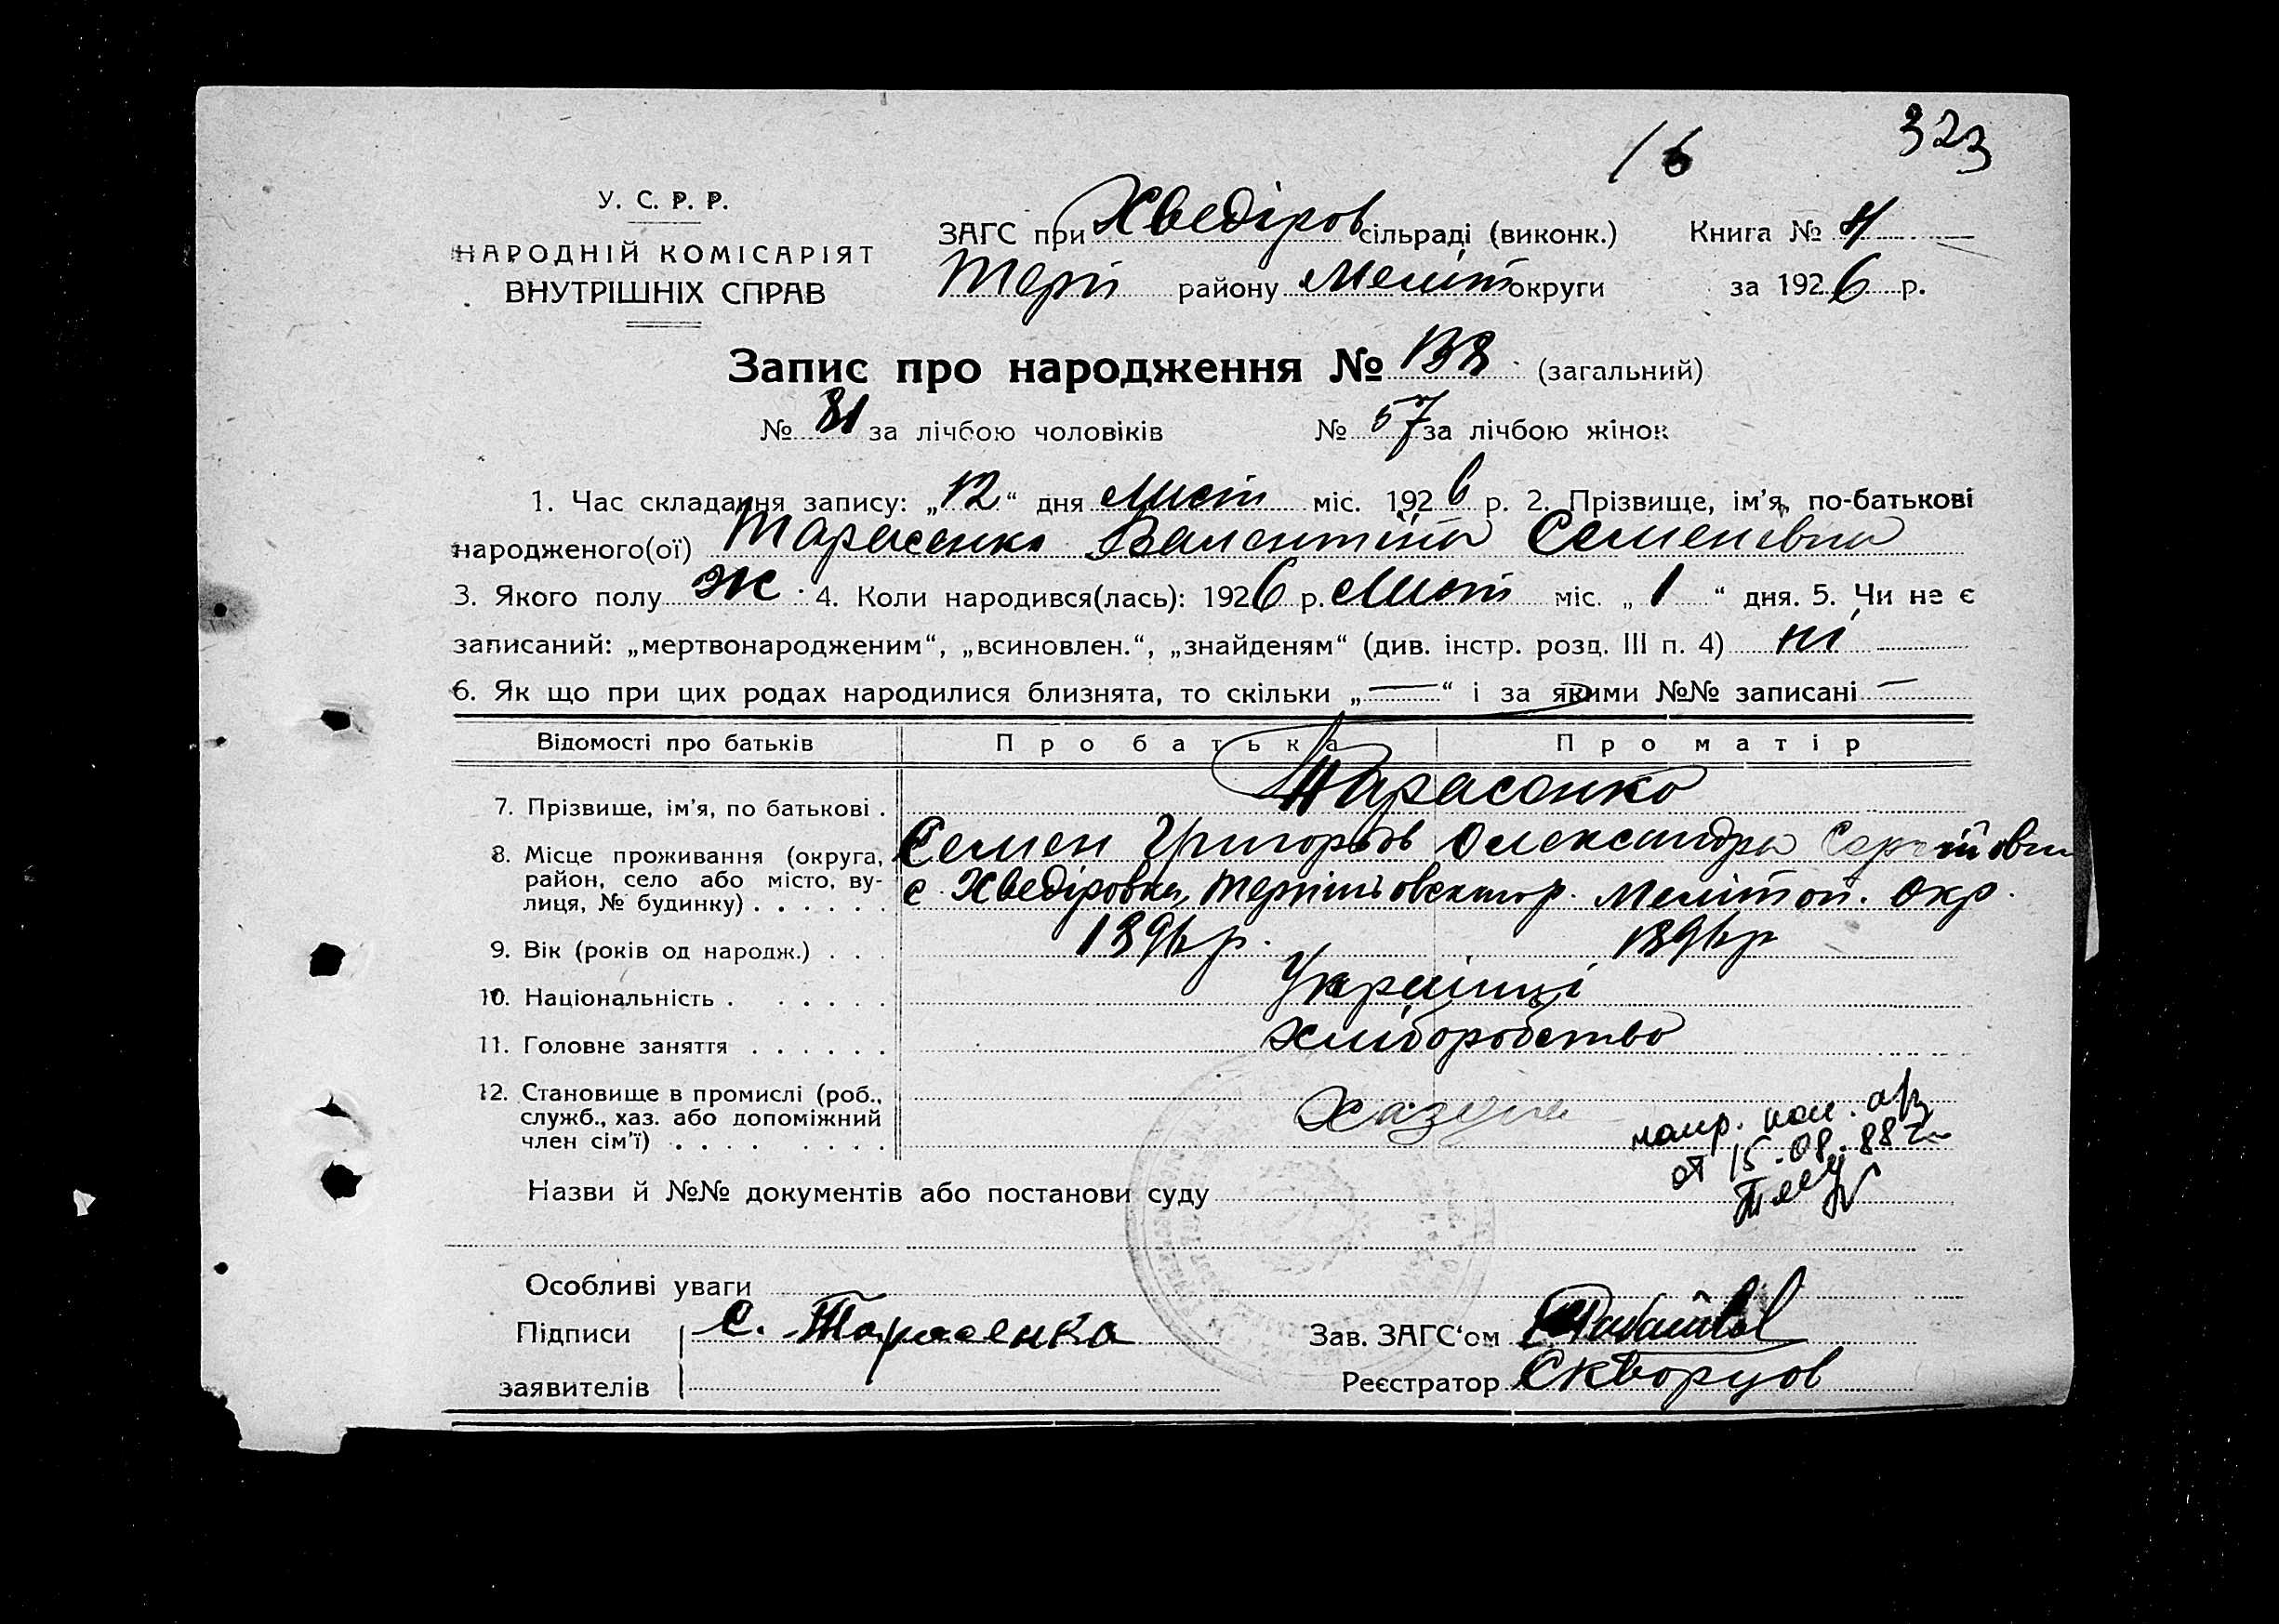 16 323
У. С. Р. Р.
НАРОДНІЙ КОМІСАРІЯТ
ВНУТРІШНІХ СПРАВ
ЗАГС при Хведіров сільраді (виконк.) Книга №
Терп району Меліт округи за 1926 р.
Запис про народження № 138 (загальний)
№ 81 за лічбою чоловіків № 57 за лічбою жінок
1. Час складання запису: „12“ дня Лист міс. 1926 р. 2. Прізвище, ім'я, по-батькові
народженого(ої) Тарасенко Валентина Семеневна
3. Якого полу Ж 4. Коли народився(лась): 1926 р. Лист міс. „1“ дня. 5. Чи не є
записаний: „мертвонародженим“, „всиновлен.“, „знайденям“ (див. інстр. розд. III п. 4) ні
6. Як що при цих родах народилися близнята, то скільки „—“ і за якими №№ записані —
Відомості про батьків Про батька Про матір
7. Прізвище, ім'я, по батькові . Тарасенко
Семен Григорьов Олександра Сергійовна
8. Місце проживання (округа, район, село або місто, вулиця, № будинку) . . . . . . с. Хведіровка, Терпіньовского р. Мелітоп. Окр.
9. Вік (років од народж.) . . . 1896 р. 1896 р
10. Національність . . . . . . Українці
11. Головне заняття . . . . . . Хліборобство
12. Становище в промислі (роб., служб., хаз. або допоміжний член сім'ї) . . . . . . . . Хазяін
от 15.08.88 г.
Назви й №№ документів або постанови суду
Особливі уваги
Підписи С. Тарасенко Зав. ЗАГС‘ом
заявителів Реєстратор Скворцов